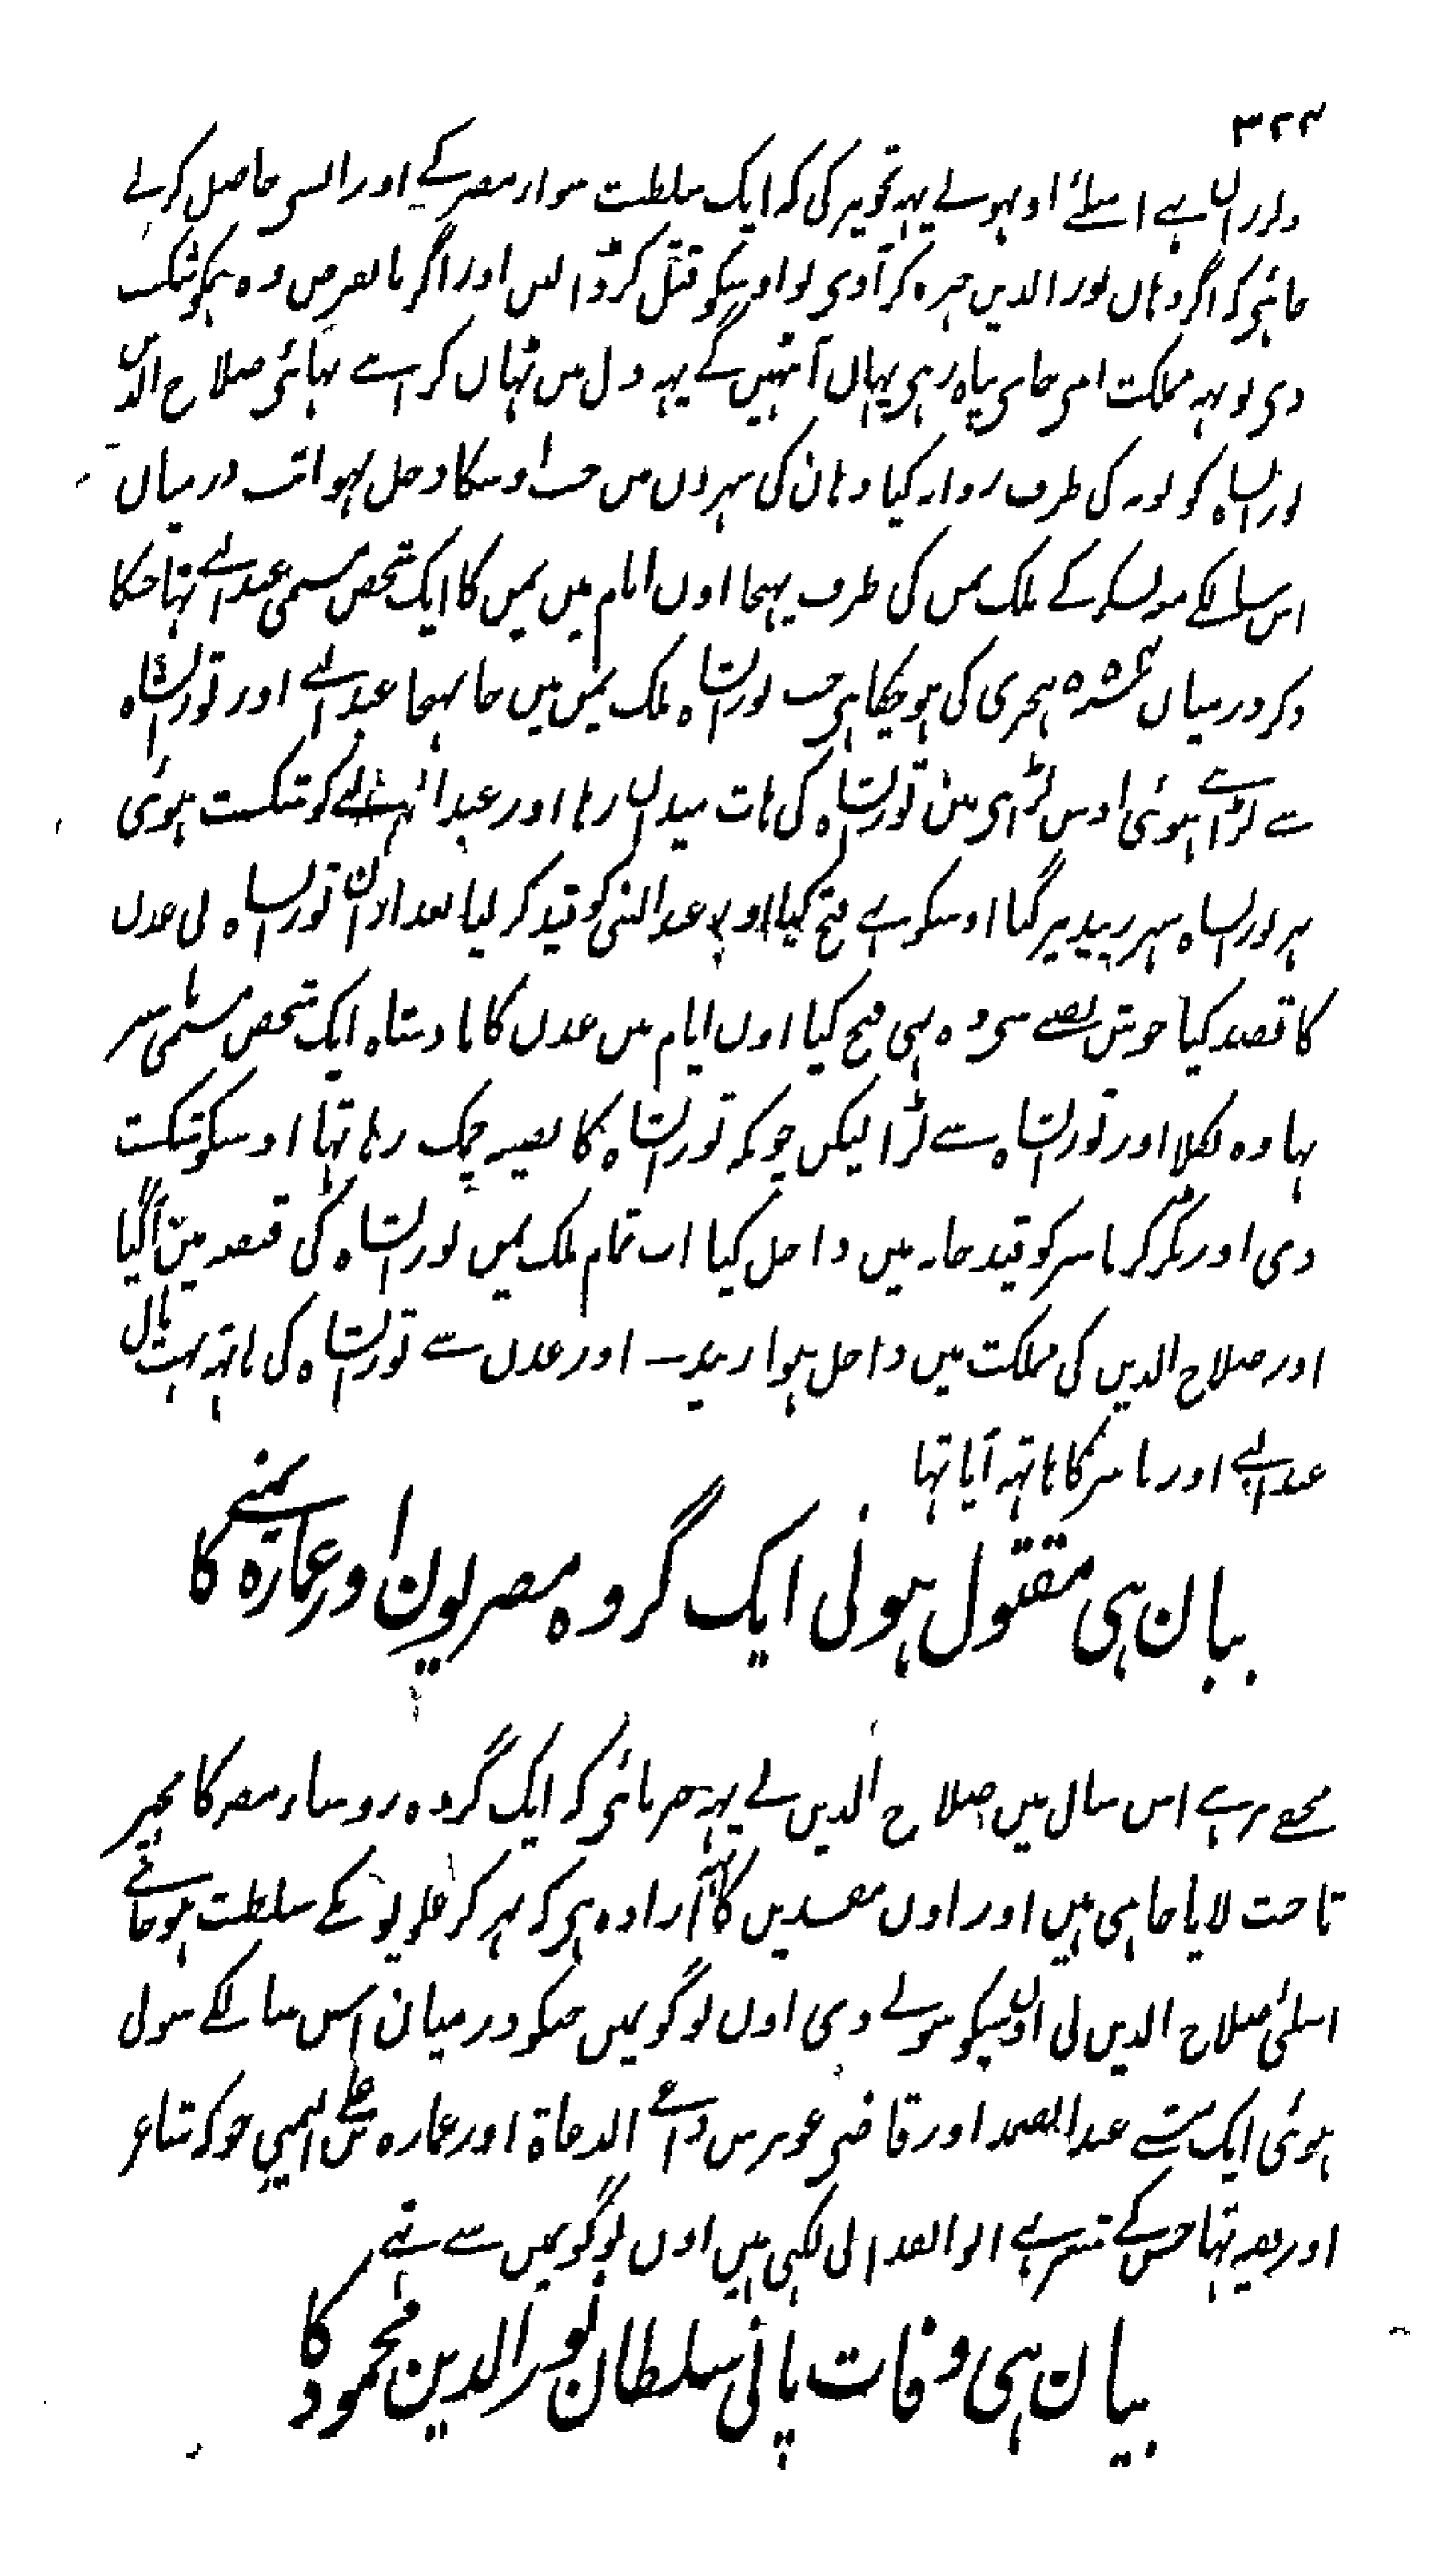 ۳۲۴
اسلئے اونہوں نے یہہ تجویز کی کہ ایک سلطنت سواء مصر کے اور ایسی حاصل کرنے
چاہئی کہ اگر وہاں نور الدین چڑہ کر آوی تو اوسکو قتل کر ڈالیں اور اگر بالفرض وہ ہمکو شکست
دی تو یہہ مملکت ایسی جای پناہ رہی یہاں آئینگے یہہ دل میں ٹہان کر اپنے بہائی صلاح الدین
تورانشاہ کو نوبہ کی طرف روانہ کیا وہان کی شہروں میں جب اوسکا دخل ہوا تب درمیان
اس سال کے ملک یمن کی طرف بہیجا اون ایام میں یمن کا ایک شخص مسمی عبدالنبی تہا جسکا
ذکر درمیان ہجری کی ہوچکا ہی جب تورانشاہ ملک یمن میں جا پہنچا عبدالنبی اور تورانشاہ
سے لڑائی ہوئی اوس لڑائی مین تورانشاہ کی ہات میدان رہا اور عبدالنبی کو شکست ہوئی
پر تورانشاہ شہر زبید پر گیا اوسکو بہی فتح کیا اور عبدالنبی کو قید کر لیا بعد ازان تورانشاہ نی عدن
کا قصد کیا خوش نصیبی سی وہ بہی فتح کیا اون ایام میں عدن کا بادشاہ ایک شخص مسمی یاسر
تہا وہ نکلا اور تورانشاہ سے لڑا لیکن چونکہ تورانشاہ کا نصیبہ چمک رہا تہا اوسکو شکست
دی اور پکڑ کر یاسر کو قیدخانہ میں داخل کیا اب تمام ملک یمن تورانشاہ کی قبضہ مین آگیا
اور صلاح الدین کی مملکت میں داخل ہوا زبید اور عدن سے تورانشاہ کی ہاتہہ بہت مال
عبدالنبی اور یاسر کا ہاتہہ آیا تہا
بیان ہی مقتول ہونی ایک گروہ مصریون اور عمارہ یمنی کا
مخفی نرہے اس سال میں صلاح الدین نے یہہ خبر پائی کہ ایک گروہ روساء مصر کا مجہپر
تاخت لایا چاہی ہیں اور اون مفسدین کا یہہ ارادہ ہی کہ پہر کر علویوں کے سلطنت ہو جائے
اسلئی صلاح الدین نی اون سبکو سولے دی اون لوگو نمیں جنکو درمیان اس سال کے سولی
ہوئی ایک عبدالصمد اور قاضی عویرس داعی الدعاة اور عمارہ بن علی الیمنی جو کہ شاعر
اور فقیہ تہا جس کے شعر بہی ابو الفدا نی لکہی ہیں اون لوگو نمیں سے تہے
بیان ہی وفات پانی سلطان نور الدین محمود کا